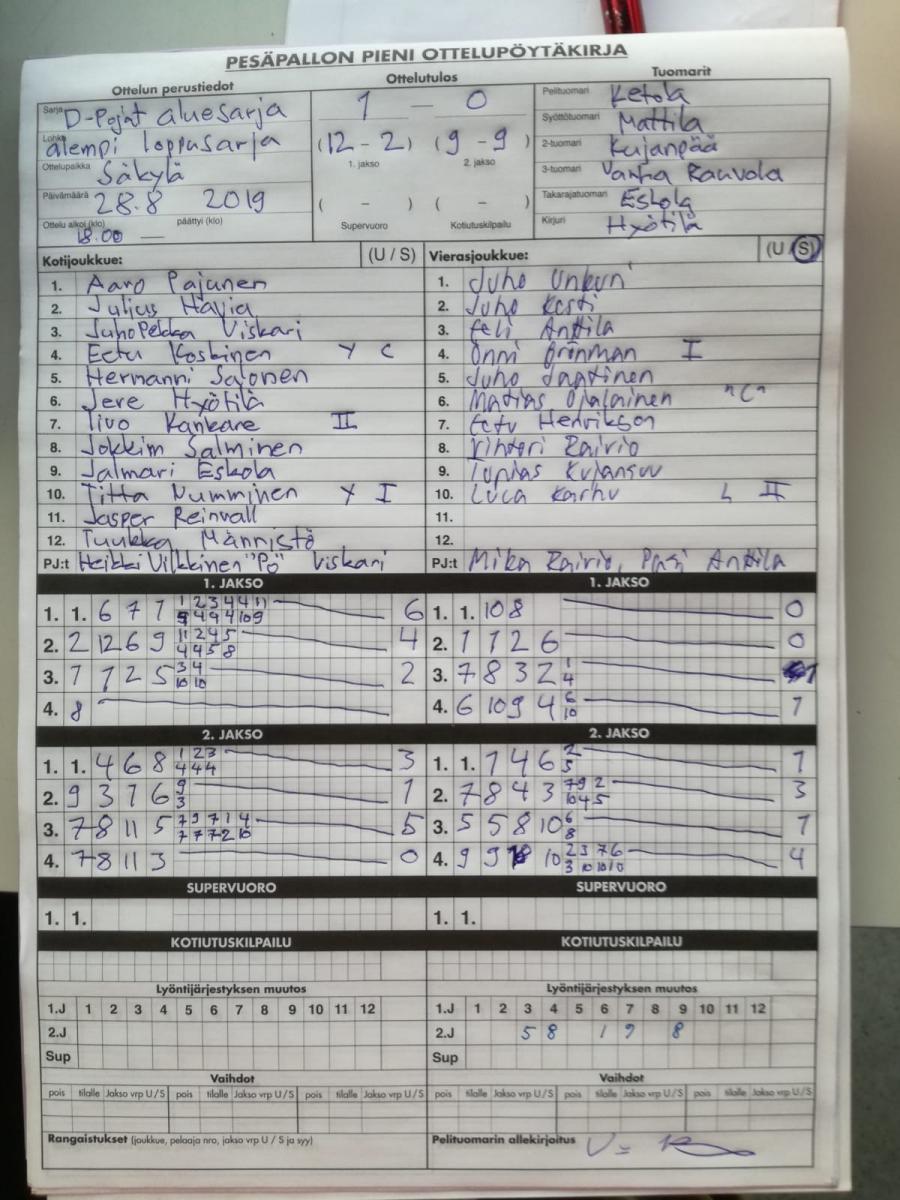 PESÄPALLON PIENI OTTELUPÖYTÄKIRJA
Ottelun perustiedot Ottelutulos Tuomarit
Sarja D-Pojat aluesarja 1 — 0 Pelituomari Ketola
Lohko alempi loppusarja (12 - 2) (9 - 9) Syöttötuomari Mattila
1. jakso 2. jakso 2-tuomari Kujanpää
Ottelupaikka Säkylä 3-tuomari Vanha Rauvola
Päivämäärä 28.8 2019 ( - ) ( - ) Takarajatuomari Eskola
Ottelu alkoi (klo) 18.00 — päättyi (klo) Supervuoro Kotiutuskilpailu Kirjuri Hyötilä
Kotijoukkue: (U / S) Vierasjoukkue: (U / S)
1. Aaro Pajunen 1. Juho
2. Julius 2. Juho Kosti
3. JuhoPekka Viskari 3. Anttila
4. Eetu Koskinen Y C 4. Onni Grönman I
5. Hermanni Salonen 5. Juho Jaatinen
6. Jere Hyötilä 6. Matias Ojalainen "C"
7. Iivo Kankare II 7. Eetu Henrikson
8. Jokkim Salminen 8. Vihtori Rairio
9. Jalmari Eskola 9. Topias Kujansuu
10. Titta Numminen Y I 10. Luca Karhu L II
11. Jasper Reinvall 11.
12. Tuukka Männistö 12.
PJ:t Heikki Vilkkinen "Pö" Viskari PJ:t Mika Rairio, Pasi Anttila
1. JAKSO 1. JAKSO
1. 1. 6 7 1 1 2 3 4 4 11 6 1. 1. 10 8 0
9 4 9 4 10 9
2. 2 12 6 9 11 2 4 5 4 2. 1 1 2 6 0
4 4 5 8
3. 7 1 2 5 3 4 2 3. 7 8 3 2 1 1
10 10 4
4. 8 4. 6 10 9 4 6 1
10
2. JAKSO 2. JAKSO
1. 1. 4 6 8 1 2 3 3 1. 1. 1 4 6 2 1
4 4 4 5
2. 9 3 7 6 9 1 2. 7 8 4 3 7 9 2 3
3 10 4 5
3. 7 8 11 5 7 9 7 1 4 5 3. 5 5 8 10 6 1
7 7 7 2 10 8
4. 7 8 11 3 0 4. 9 9 10 2 3 7 6 4
3 10 10 10
SUPERVUORO SUPERVUORO
1. 1. 1. 1.
KOTIUTUSKILPAILU KOTIUTUSKILPAILU
Lyöntijärjestyksen muutos Lyöntijärjestyksen muutos
1.J 1 2 3 4 5 6 7 8 9 10 11 12 1.J 1 2 3 4 5 6 7 8 9 10 11 12
2.J 2.J 5 8 1 9 8
Sup Sup
Vaihdot Vaihdot
pois tilalle Jakso vrp U / S pois tilalle Jakso vrp U / S pois tilalle Jakso vrp U / S pois tilalle Jakso vrp U / S pois tilalle Jakso vrp U / S pois tilalle Jakso vrp U / S
Rangaistukset (joukkue, pelaaja nro, jakso vrp U / S ja syy) Pelituomarin allekirjoitus